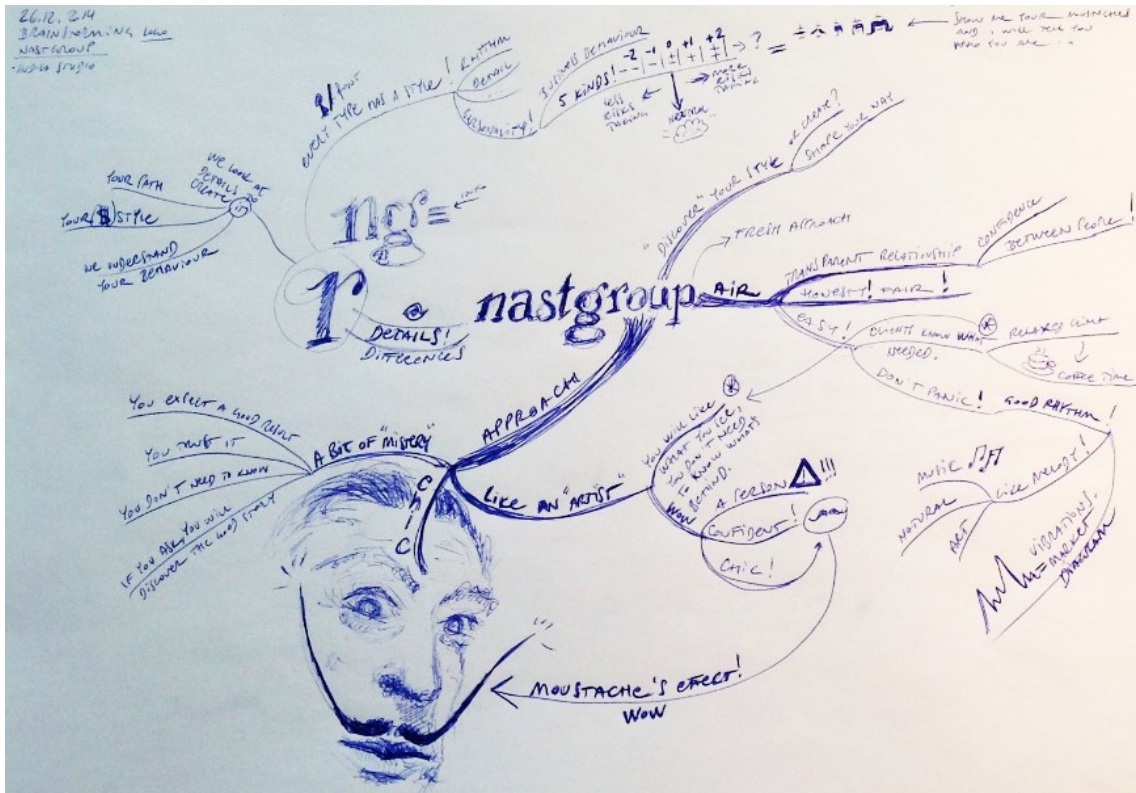 26.12.2014
BRAINSTORMING LOGO
NASTGROUP
INDIGO STUDIO
FONT
EVERY TYPE HAS A STYLE!
RHYTHM
DETAIL
PERSONALITY!
BUSINESS BEHAVIOUR
5 KINDS!
-2 -1 0 +1 +2
? =
LESS
RISKS
TAKING
NEUTRAL
MORE
RISKS
TAKING
SHOW ME YOUR MOUSTACHES
AND I WILL TELL YOU
WHO YOU ARE...
WE LOOK AT
DETAILS
CREATE
YOUR PATH
YOUR (S) STYLE
WE UNDERSTAND
YOUR BEHAVIOUR
ng
INK
r
DETAILS!
DIFFERENCES
nastgroup
"DISCOVER" YOUR STYLE
OR CREATE?
SHAPE YOUR WAY
FRESH APPROACH
AIR
TRANSPARENT RELATIONSHIP
CONFIDENCE
BETWEEN PEOPLE!
HONESTY! FAIR!
EASY!
CLIENTS KNOW WHAT
NEEDED.
RELAXED CLIMAT
COFFEE TIME
DON'T PANIC!
GOOD RHYTHM!
LIKE MELODY!
MUSIC
NATURAL
ART
VIBRATIONS.
= MARKET
DIAGRAM
APPROACH
A BIT OF "MISTERY"
YOU EXPECT A GOOD RESULT
YOU TRUST IT
YOU DON'T NEED TO KNOW
IF YOU ASK, YOU WILL
DISCOVER THE GOOD STORY
Chic
LIKE AN "ARTIST"
YOU WILL LIKE
WHAT YOU SEE,
YOU DON'T NEED
TO KNOW WHAT'S
BEHIND.
WOW
A PERSON !!!
CONFIDENT!
CHIC!
MOUSTACHE'S EFFECT!
WOW